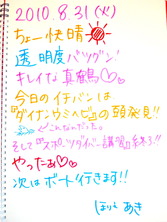 2010.8.31(火)
ちょー快晴
透明度バツグン!
キレイな真鶴♡♡
今日のイチバンは
"ダイナンウミヘビ"の頭発見!!
こんなだった。
そして"スポーツダイバー講習"終了!!
やったぁ♡♡
次はボート!行きます!!
ほりえ あき